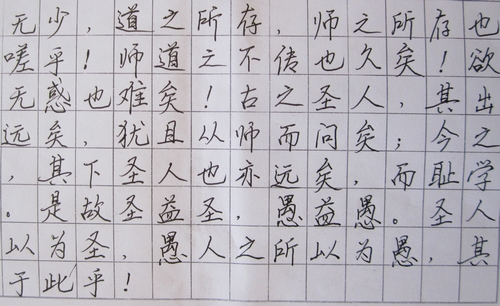 无少，道之所存，师之所存也
嗟乎！师道之不传也久矣！欲
无惑也难矣！古之圣人，其出
远矣，犹且从师而问矣；今之
，其下圣人也亦远矣，而耻学
。是故圣益圣，愚益愚。圣人
以为圣，愚人之所以为愚，其
于此乎！